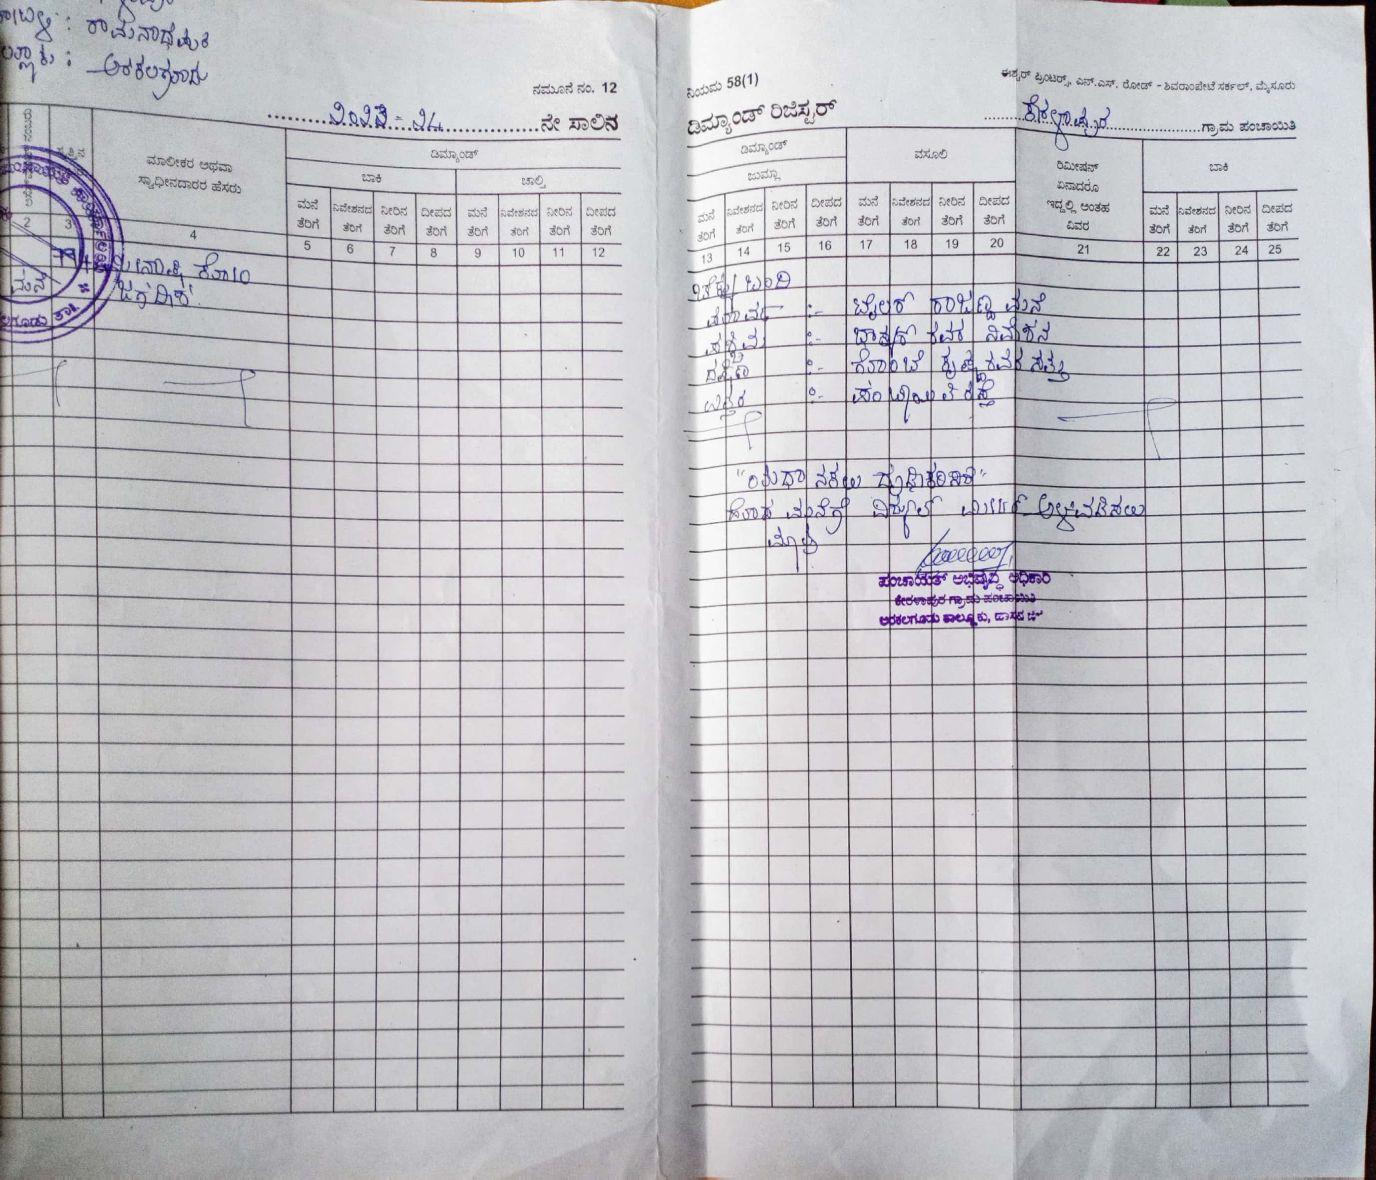 : ರಾಮನಾಥಪುರ
: ಅರಕಲಗೂಡು
ನಮೂನೆ ನಂ. 12
೨೦೨೩ - ೨೪ ನೇ ಸಾಲಿನ
ಮಾಲೀಕರ ಅಥವಾ
ಸ್ವಾಧೀನದಾರರ ಹೆಸರು
ಡಿಮ್ಯಾಂಡ್
ಬಾಕಿ ಚಾಲ್ತಿ
ಮನೆ ನಿವೇಶನದ ನೀರಿನ ದೀಪದ ಮನೆ ನಿವೇಶನದ ನೀರಿನ ದೀಪದ
ತೆರಿಗೆ ತೆರಿಗೆ ತೆರಿಗೆ ತೆರಿಗೆ ತೆರಿಗೆ ತೆರಿಗೆ ತೆರಿಗೆ ತೆರಿಗೆ
2 3 4 5 6 7 8 9 10 11 12
ಜಗದೀಶ
ಮನೆ
ನಿಯಮ 58(1)
ಈಶ್ವರ್ ಪ್ರಿಂಟರ್ಸ್, ಎನ್.ಎಸ್. ರೋಡ್ - ಶಿವರಾಂಪೇಟೆ ಸರ್ಕಲ್, ಮೈಸೂರು
ಡಿಮ್ಯಾಂಡ್ ರಿಜಿಸ್ಟರ್
ಕೇರಳಾಪುರ ಗ್ರಾಮ ಪಂಚಾಯಿತಿ
ಡಿಮ್ಯಾಂಡ್
ಜುಮ್ಲಾ
ವಸೂಲಿ
ರಿಮೀಷನ್
ಏನಾದರೂ
ಇದ್ದಲ್ಲಿ ಅಂತಹ
ವಿವರ
ಬಾಕಿ
ಮನೆ ನಿವೇಶನದ ನೀರಿನ ದೀಪದ ಮನೆ ನಿವೇಶನದ ನೀರಿನ ದೀಪದ ಮನೆ ನಿವೇಶನದ ನೀರಿನ ದೀಪದ
ತೆರಿಗೆ ತೆರಿಗೆ ತೆರಿಗೆ ತೆರಿಗೆ ತೆರಿಗೆ ತೆರಿಗೆ ತೆರಿಗೆ ತೆರಿಗೆ ತೆರಿಗೆ ತೆರಿಗೆ ತೆರಿಗೆ ತೆರಿಗೆ
13 14 15 16 17 18 19 20 21 22 23 24 25
ಚೆಕ್ಕು ಬಂದಿ
ಪೂರ್ವ :- ಟೈಲರ್ ರಾಜಣ್ಣ ಮನೆ
ಪಶ್ಚಿಮ :- ಭಾಸ್ಕರ್ ರವರ ನಿವೇಶನ
ದಕ್ಷಿಣ :- ಕೃಷ್ಣ ರವರ ಸ್ವತ್ತು
ಉತ್ತರ :- ಪಂಚಾಯಿತಿ ರಸ್ತೆ
"ಯಥಾ ನಕಲು ದೃಢೀಕರಿಸಿದೆ"
ಮನೆಗೆ ವಿದ್ಯುತ್ ಮೀಟರ್ ಅಳವಡಿಸಲು
ಮಾತ್ರ
ಪಂಚಾಯತ್ ಅಭಿವೃದ್ಧಿ ಅಧಿಕಾರಿ
ಕೇರಳಾಪುರ ಗ್ರಾಮ ಪಂಚಾಯಿತಿ
ಅರಕಲಗೂಡು ತಾಲ್ಲೂಕು, ಹಾಸನ ಜಿಲ್ಲೆ